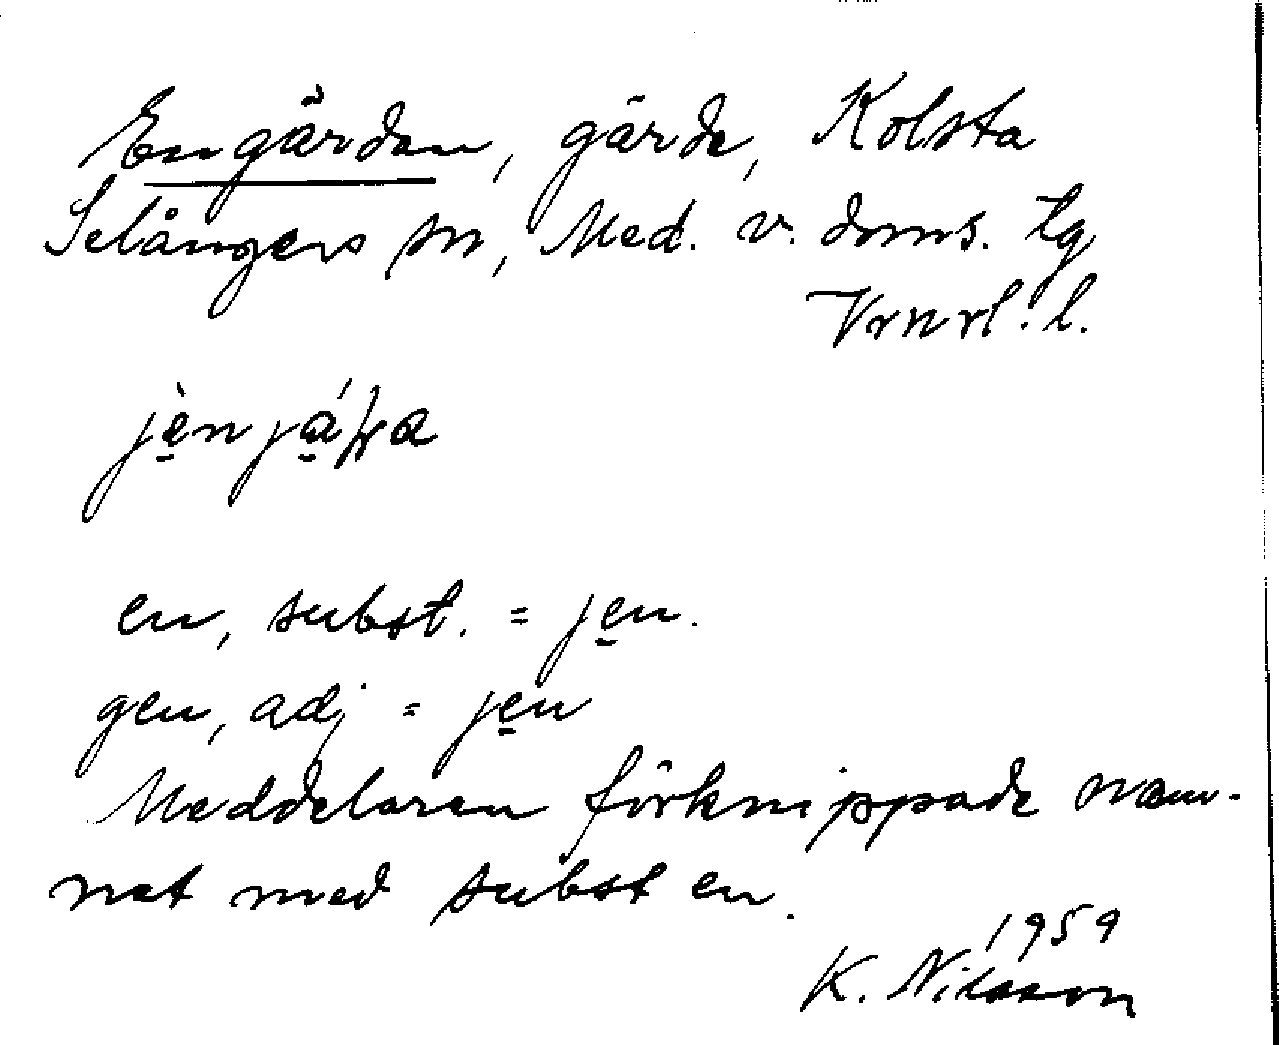 Engärdan, gärde, Kolsta
Selångers sn, Med. v. doms. tg
Vrnrl. l.
en, subst. = jen.
gen, adj = jen
Meddelaren förknippade nam-
net med subst en.
1959
K. Nilsson